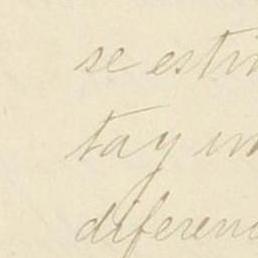 se esti
tay im
diferenc